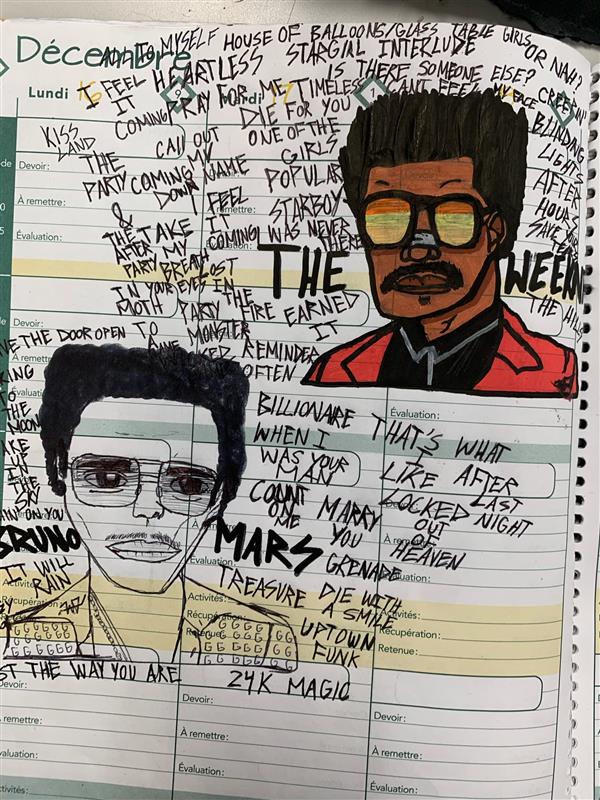 Décembre
ALL I TO MYSELF HOUSE OF BALLOONS/GLASS TABLE GIRLS OR NAH?
I FEEL HEARTLESS STARGIRL INTERLUDE
IT COMING PRAY FOR ME TIMELESS
IS THERE SOMEONE ELSE? CREEPIN'
CANT FEEL MY FACE
Lundi 16
9
Mardi 17
1
KISS
LAND
THE
PARTY
&
THE
AFTER
PARTY
CALL OUT
MY
NAME
COMING
DOWN
TAKE
MY
BREATH
DIE FOR YOU
ONE OF THE
GIRLS
POPULAR
I FEEL
IT
COMING
STARBOY
I WAS NEVER
THERE
BLINDING
LIGHTS
AFTER
HOURS
SAVE YOUR
IN YOUR EYES
LOST
IN
THE
FIRE
EARNED
IT
MOTH
TO
PARTY
MONSTER
REMINDER
OFTEN
THE WEEKN
THE HILLS
Devoir:
À remettre:
Évaluation:
Devoir:
À remettre:
Évaluation:
THE DOOR OPEN
KING
TO
THE
MOON
KE
OUT
IN
THE
SKY
ON YOU
BRUNO MARS
IT WILL
RAIN
ST THE WAY YOU ARE
BILLIONAIRE
WHEN I
WAS YOUR
MAN
COUNT
ON
ME
MARRY
YOU
GRENADE
THAT'S WHAT
I
LIKE AFTER
LAST
NIGHT
LOCKED
OUT
OF
HEAVEN
TREASURE
DIE WITH
A SMILE
UPTOWN
FUNK
24K MAGIC
GGGG
GGGGG
Évaluation:
Évaluation:
Activités:
Récupération:
Retenue:
Activités:
Récupération:
Retenue:
Activités:
Récupération:
Devoir:
À remettre:
Évaluation:
Activités:
Devoir:
À remettre:
Évaluation:
Devoir:
À remettre:
Évaluation: